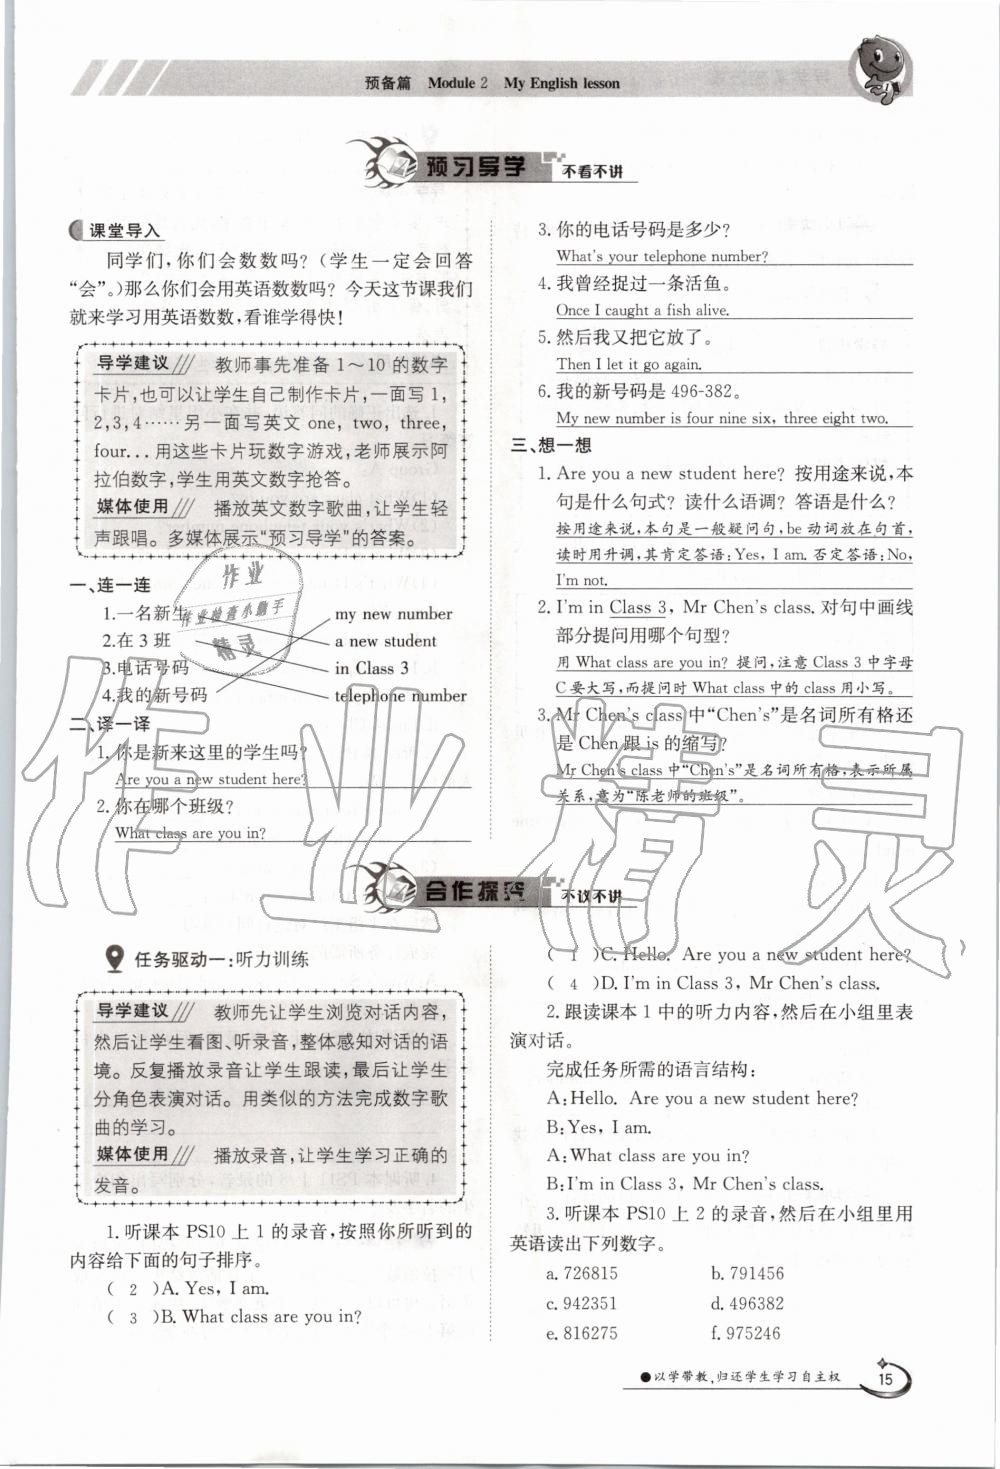 预备篇 Module 2 My English lesson
预习导学 不看不讲
课堂导入
同学们,你们会数数吗?(学生一定会回答
“会”。)那么你们会用英语数数吗? 今天这节课我们
就来学习用英语数数,看谁学得快!
导学建议/// 教师事先准备 1～10 的数字
卡片,也可以让学生自己制作卡片,一面写 1,
2,3,4……另一面写英文 one, two, three,
four...用这些卡片玩数字游戏,老师展示阿
拉伯数字,学生用英文数字抢答。
媒体使用/// 播放英文数字歌曲,让学生轻
声跟唱。多媒体展示“预习导学”的答案。
一、连一连
1.一名新生 my new number
2.在 3 班 a new student
3.电话号码 in Class 3
4.我的新号码 telephone number
二、译一译
1.你是新来这里的学生吗?
Are you a new student here?
2.你在哪个班级?
What class are you in?
3.你的电话号码是多少?
What's your telephone number?
4.我曾经捉过一条活鱼。
Once I caught a fish alive.
5.然后我又把它放了。
Then I let it go again.
6.我的新号码是 496-382。
My new number is four nine six, three eight two.
三、想一想
1.Are you a new student here? 按用途来说,本
句是什么句式? 读什么语调? 答语是什么?
按用途来说,本句是一般疑问句,be 动词放在句首,
读时用升调,其肯定答语:Yes, I am. 否定答语:No,
I'm not.
2.I'm in Class 3, Mr Chen's class. 对句中画线
部分提问用哪个句型?
用 What class are you in? 提问,注意 Class 3 中字母
C要大写,而提问时 What class 中的 class 用小写。
3.Mr Chen's class 中“Chen's”是名词所有格还
是 Chen 跟 is 的缩写?
Mr Chen's class 中“Chen's”是名词所有格,表示所属
关系,意为“陈老师的班级”。
合作探究 不议不讲
任务驱动一:听力训练
导学建议/// 教师先让学生浏览对话内容,
然后让学生看图、听录音,整体感知对话的语
境。反复播放录音让学生跟读,最后让学生
分角色表演对话。用类似的方法完成数字歌
曲的学习。
媒体使用/// 播放录音,让学生学习正确的
发音。
1.听课本 PS10 上 1 的录音,按照你所听到的
内容给下面的句子排序。
( 2 )A. Yes, I am.
( 3 )B. What class are you in?
( 1 )C. Hello. Are you a new student here?
( 4 )D. I'm in Class 3, Mr Chen's class.
2.跟读课本 1 中的听力内容,然后在小组里表
演对话。
完成任务所需的语言结构:
A:Hello. Are you a new student here?
B:Yes, I am.
A:What class are you in?
B:I'm in Class 3, Mr Chen's class.
3.听课本 PS10 上 2 的录音,然后在小组里用
英语读出下列数字。
a. 726815 b. 791456
c. 942351 d. 496382
e. 816275 f. 975246
●以学带教,归还学生学习自主权 15
作业
作业检查小助手
精灵
作业精灵